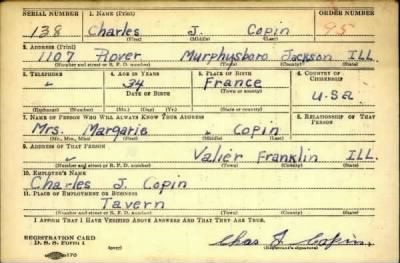 SERIAL NUMBER 1. NAME (Print) ORDER NUMBER
138 Charles J. Copin 95
(First) (Middle) (Last)
2. ADDRESS (Print)
1107 Rover Murphysboro Jackson ILL
(Number and street or R. F. D. number) (Town) (County) (State)
3. TELEPHONE 4. AGE IN YEARS 5. PLACE OF BIRTH 6. COUNTRY OF CITIZENSHIP
34 France
DATE OF BIRTH (Town or county) U.S.a.
(Exchange) (Number) (Mo.) (Day) (Yr.) (State or country)
7. NAME OF PERSON WHO WILL ALWAYS KNOW YOUR ADDRESS 8. RELATIONSHIP OF THAT PERSON
Mrs. Margarie Copin
(Mr., Mrs., Miss) (First) (Middle) (Last)
9. ADDRESS OF THAT PERSON
Valier Franklin ILL.
(Number and street or R. F. D. number) (Town) (County) (State)
10. EMPLOYER'S NAME
Charles J. Copin
11. PLACE OF EMPLOYMENT OR BUSINESS
Tavern
(Number and street or R. F. D. number) (Town) (County) (State)
I AFFIRM THAT I HAVE VERIFIED ABOVE ANSWERS AND THAT THEY ARE TRUE.
REGISTRATION CARD
D. S. S. Form 1 Chas J Copin
(Registrant's signature)